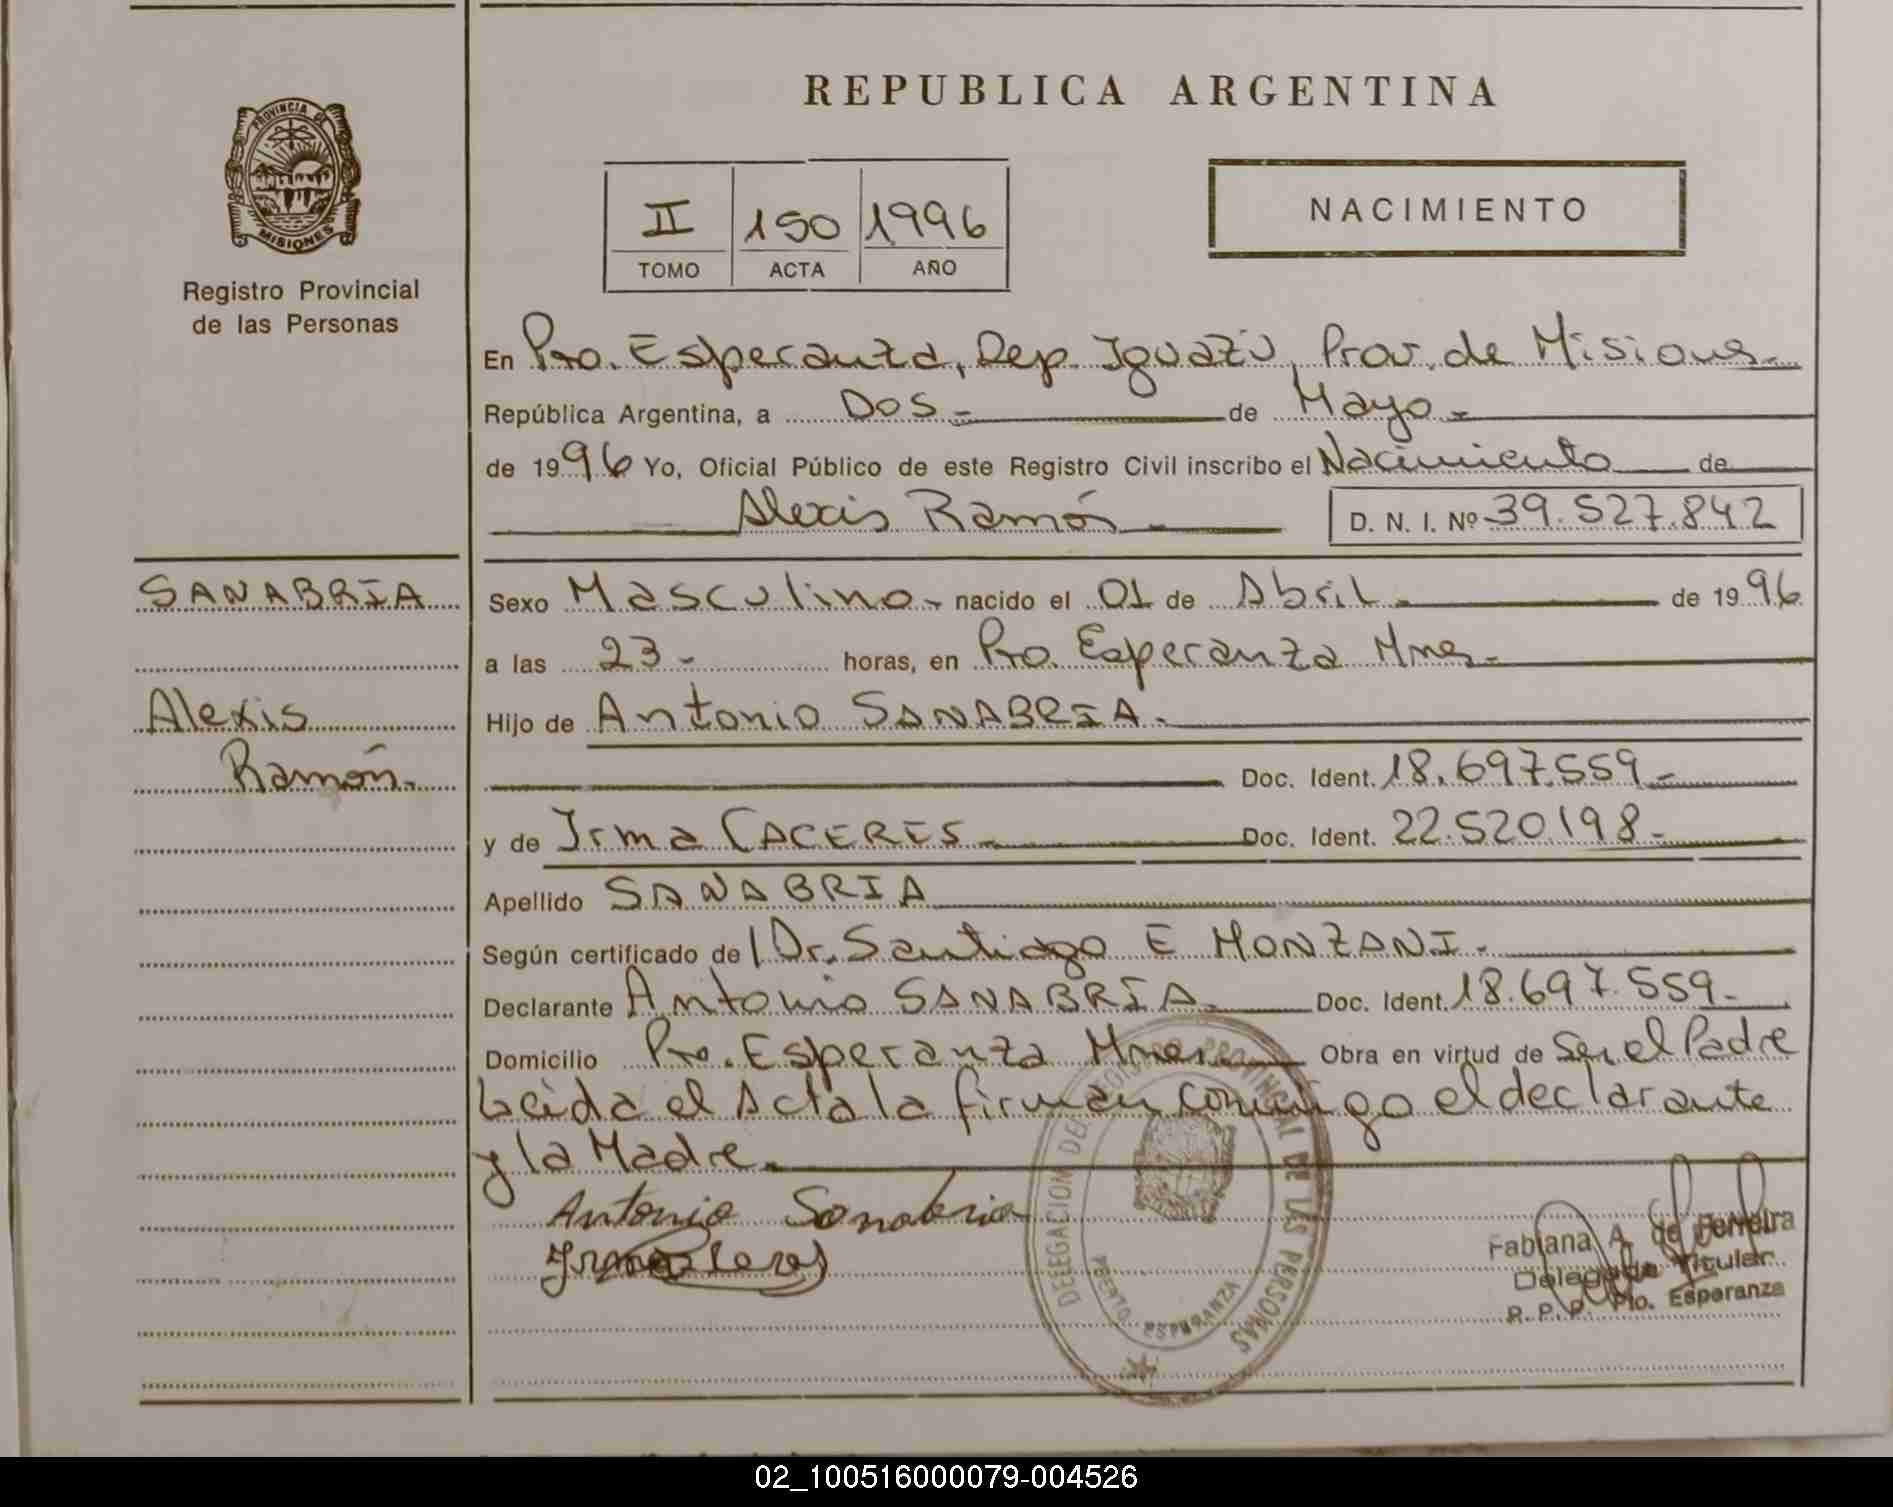 REPUBLICA ARGENTINA
PROVINCIA DE
MISIONES
Registro Provincial
de las Personas
II 150 1996
TOMO ACTA AÑO
NACIMIENTO
En Pto. Esperanza, Dep. Iguazú, Prov. de Misiones.-
República Argentina, a Dos.- de Mayo.-
de 1996 Yo, Oficial Público de este Registro Civil inscribo el Nacimiento de
Alexis Ramón.- D. N. I. Nº 39.527.842
SANABRIA
Alexis
Ramón.-
Sexo Masculino.- nacido el 01 de Abril.- de 1996
a las 23.- horas, en Pto. Esperanza Mnes.-
Hijo de Antonio SANABRIA.-
Doc. Ident. 18.697.559.-
y de Irma CACERES.- Doc. Ident. 22.520.198.-
Apellido SANABRIA
Según certificado de Dr. Santiago E MONZANI.-
Declarante Antonio SANABRIA.- Doc. Ident. 18.697.559.-
Domicilio Pto. Esperanza Mnes.- Obra en virtud de Ser el Padre
Leida el Acta la firman conmigo el declarante
y la Madre.-
Antonio Sanabria
Irma Caceres
DELEGACION DEL REGISTRO PROVINCIAL DE LAS PERSONAS
PUERTO ESPERANZA
Fabiana A. de Ferreira
Delegada Titular
R. P. P. Pto. Esperanza
02_100516000079-004526